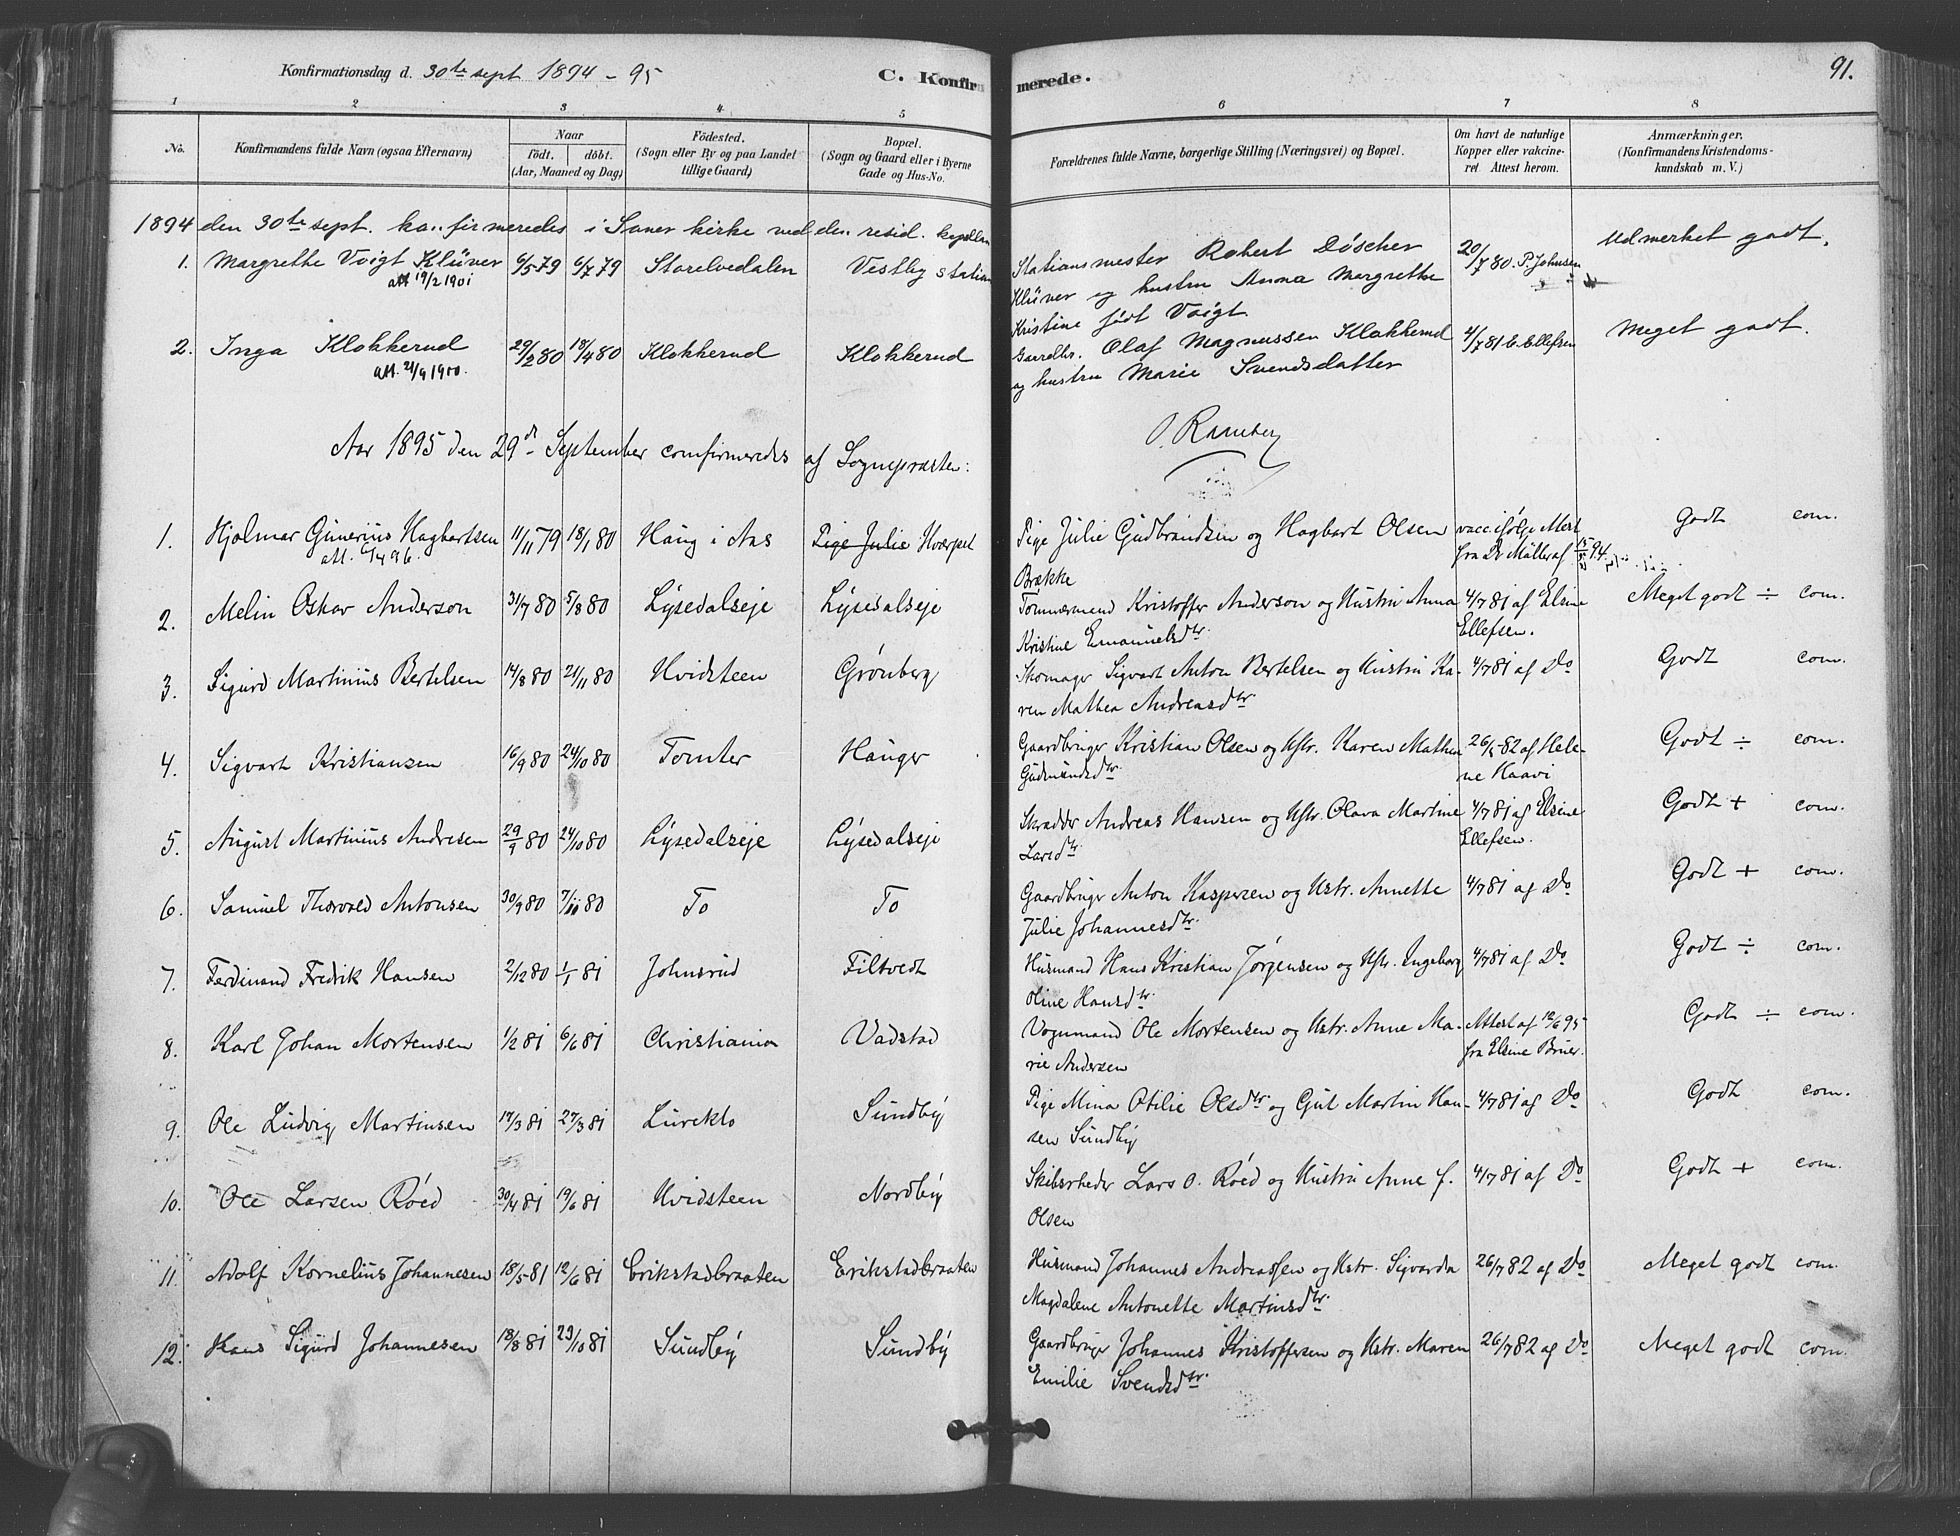 Konfirmationsdag d. 30te sept 1894 - 95
C. Konfirmerede.
91.
1 2 3 4 5 6 7 8
No.
Konfirmandens fulde Navn (ogsaa Efternavn)
Naar
født. døbt.
(Aar, Maaned og Dag)
Fødested.
(Sogn eller By og paa Landet
tillige Gaard)
Bopæl.
(Sogn og Gaard eller i Byerne
Gade og Hus-No.
Forældrenes fulde Navne, borgerlige Stilling (Næringsvei) og Bopæl.
Om havt de naturlige
Kopper eller vakcine-
ret. Attest herom.
Anmærkninger.
(Konfirmandens Kristendoms-
kundskab m. V.)
1894 den 30te sept. konfirmeredes i Saner kirke ved den resid. kapellan
1. Margrethe Voigt Klüver 6/5 79 6/7 79 Storelvedalen Vestby station Stationsmester Robert Döscher 20/7 80. P. Johnsen Udmerket godt.
att 19/2 1901
Klüver og hustru Anna Margrethe
Kristine født Voigt
2. Inga Klokkerud 29/2 80 18/4 80 Klokkerud Klokkerud Gaardbr. Olaf Magnussen Klokkerud 4/7 81 E. Ellefsen Meget godt.
att. 21/9 1900.
og hustru Marie Svendsdatter
O. Ramberg
Aar 1895 den 29de September comfirmeredes af Sognepræsten:
1. Hjalmar Gunerius Hagbartsen 11/11 79 18/1 80 Haug i Aas Pige Julie Hværpet Pige Julie Gudbrandsen og Hagbart Olsen vacc. ifølge Attest Godt com.
att. 96.
Brække
fra Dr Møller af 15/5 94.
2. Melin Oskar Anderson 31/7 80 5/8 80 Lysedalseje Lysedalseje Tømmermand Kristoffer Anderson og Hustru Anna 4/7 81 af Elsine Meget godt ÷ com.
Kristine Emanuelsdtr. Ellefsen.
3. Sigurd Martinius Bertelsen 14/8 80 21/11 80 Hvidsteen Grønberg Skomager Sigvart Anton Bertelsen og Hustru Ka- 4/7 81 af Do Godt com.
ren Mathea Andreasdtr
4. Sigvart Kristiansen 16/9 80 24/10 80 Tomter Hauger Gaardbruger Kristian Olsen og Hstr. Karen Mathea 26/ 82 af Hele- Godt ÷ com.
Gudmundsdtr. ne Haavi
5. August Martinius Andresen 29/9 80 24/10 80 Lysedalseje Lysedalseje Skrædder Andreas Hansen og Hstr. Olava Martine 4/7 81 af Elsine Godt + com.
Larsdtr. Ellefsen.
6. Samuel Thorvald Antonsen 30/9 80 7/11 80 To To Gaardbruger Anton Kaspersen og Hstr. Annette 4/7 81 af Do Godt + com.
Julie Johannesdtr.
7. Ferdinand Fredrik Hansen 2/12 80 1/1 81 Johnsrud Filtvedt Husmand Hans Kristian Jørgensen og Hstr. Ingeborg 4/7 81 af Do Godt ÷ com.
Oline Hansdtr.
8. Karl Johan Mortensen 1/2 81 6/6 81 Christiania Vadstad Vognmand Ole Mortensen og Hstr. Anne Ma- Attest af 12/6 95 Godt ÷ com.
rie Andersen fra Elsine Bruer.
9. Ole Ludvig Martinsen 17/3 81 27/3 81 Lurekto Sundby Pige Mina Otilie Olsdtr og Gul Martin Han- 4/7 81 af Do Godt com.
sen Sundby
10. Ole Larsen Röed 30/4 81 19/6 81 Hvidsteen Nordby Skibsrheder Lars O. Röed og Hustru Anne f. 4/7 81 af Do Godt + com.
Olsen
11. Adolf Kornelius Johannesen 18/5 81 12/6 81 Erikstadbraaten Erikstadbraaten Husmand Johannes Andreassen og Hstr. Sigvarda 26/7 82 af Do Meget godt com.
Magdalene Antonette Martinsdtr.
12. Hans Sigurd Johannesen 18/8 81 23/10 81 Sundby Sundby Gaardbruger Johannes Kristoffersen og Hstr. Maren 26/7 82 af Do Meget godt com.
Emilie Svendsdtr.